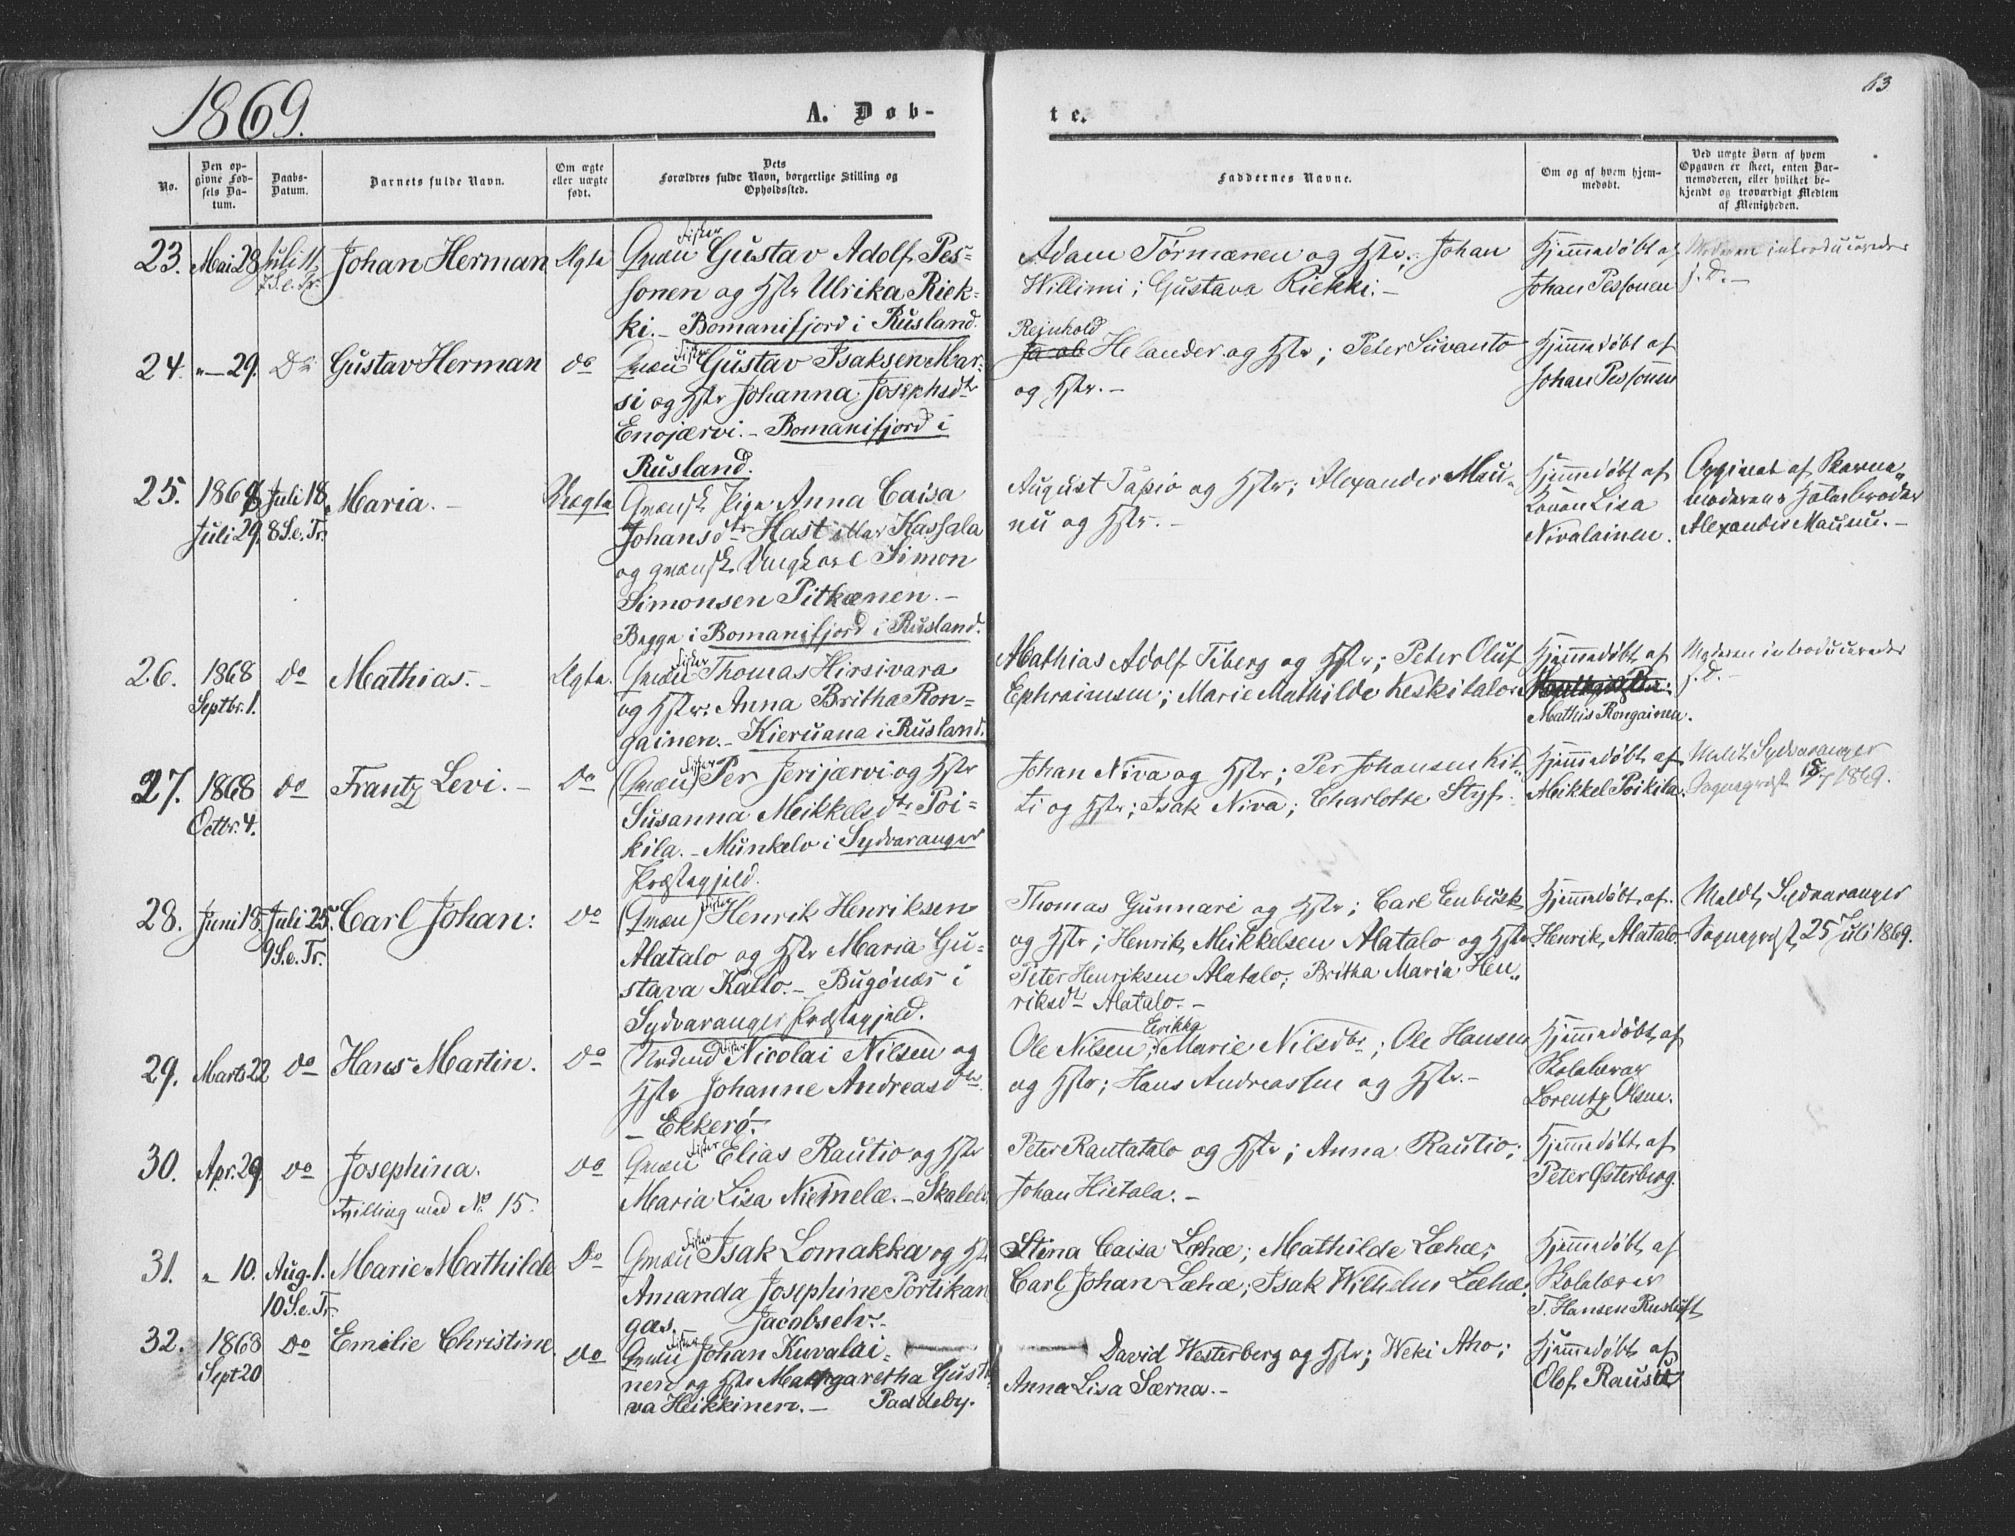 1869.
A. Døb-
te.
83
No.
Den op-
givne Fød-
sels Da-
tum.
Daabs-
Datum.
Barnets fulde Navn.
Om ægte
eller uægte
født.
Dets
Forældres fulde Navn, borgerlige Stilling og
Opholdssted.
Faddernes Navne.
Om og af hvem hjem-
medøbt.
Ved uægte Børn af hvem
Opgaven er skeet, enten Bar-
nemoderen, eller hvilket be-
kjendt og troværdigt Medlem
af Menigheden.
23. Mai 28 Juli 11
7 S. e. Tr.
Johan Herman
Ægte
Qvæn Fisker Gustav Adolf Pes-
sonen og Hstr Ulrika Riek-
ki. - Bomanifjord i Rusland.
Adam Törmænen og Hstr.; Johan
Willimi; Gustava Riekki. -
Hjemmedøbt af
Johan Pessonen
Moderen introduceredes
s. D. -
24. " - 29. Do
Gustav Herman
do
Qvæn Fisker Gustav Isaksen Mar-
si og Hstr Johanna Josephsdtr
Enojærvi. - Bomanifjord i
Rusland.
Reinhold
Jacob Helander og Hstr; Peter Suvanto
og Hstr. -
Hjemmedøbt af
Johan Pessonen
25. 1868
Juli 29.
Juli 18.
8 S. e. Tr.
Maria. -
Uægte
Qvænsk Pige Anna Caisa
Johansdtr Hast eller Kassala
og qvænsk Ungkarl Simon
Simonsen Pitkænen. -
Begge i Bomanifjord i Rusland.
August Tapio og Hstr; Alexander Mau-
nu og Hstr. -
Hjemmedøbt af
Konen Lisa
Nivalainen.
Opgivet af Barne-
moderens Halvbroder
Alexander Maunu. -
26. 1868
Septbr. 1.
do
Mathias. -
Ægte.
Qvæn Fisker Thomas Hirsivara
og Hstr: Anna Britha Ron-
gainen. - Kieruana i Rusland.
Mathias Adolf Tiberg og Hstr; Peter Oluf
Ephraimsen; Marie Mathilde Keskitalo
Hjemmedøbt af
Mathis Rongainen.
Moderen introduceredes
s. D. -
27. 1868
Octbr. 4.
do
Frantz Levi. -
Do
(Qvæn) Fisker Per Jerijærvi og Hstr
Susanna Meikkelsdtr Poi-
kila. - Munkelv i Sydvaranger
Præstegjeld.
Johan Niva og Hstr; Per Johansen Kit-
ti og Hstr; Isak Niva; Charlotte Styf.
Hjemmedøbt af
Meikkel Poikila.
Meldt Sydvaranger
Sognepræst 18/7 1869.
28. Juni 18. Juli 25.
9 S. e. Tr.
Carl Johan:
do
(Qvæn) Fisker Henrik Henriksen
Alatalo og Hstr Maria Gu-
stava Kallo. - Bugønæs i
Sydvaranger Præstegjeld.
Thomas Gunnari og Hstr; Carl Enbusk
og Hstr; Henrik Meikkelsen Alatalo og Hstr
Peter Henriksen Alatalo; Britha Maria Hen-
riksdtr Alatalo. -
Hjemmedøbt af
Henrik Alatalo.
Meldt Sydvaranger
Sognepræst 25 Juli 1869.
29. Marts 22 do
Hans Martin.
Do
Nordmd Fisker Nicolai Nilsen og
Hstr Johanne Andreasdtr.
- Ekkerø.
Ole Nilsen; Erikka Marie Nilsdtr; Ole Hansen
og Hstr; Hans Andreassen og Hstr. -
Hjemmedøbt af
Skolelærer
Lorentz Olsen.
30. Apr. 29 do
Josephina.
Tvilling med No 15.
do
Qvæn Fisker Elias Rautio og Hstr
Maria Lisa Niemelæ. - Skalelv
Peter Rautatalo og Hstr; Anna Rautio;
Johan Hietala. -
Hjemmedøbt af
Peter Østerberg.
31. " 10. Aug. 1.
10 S. e. Tr.
Marie Mathilde
Do
Qvæn Fisker Isak Lomakka og Hstr
Amanda Josephine Portikan
gas. Jacobselv. -
Stina Caisa Læhæ; Mathilde Læhæ;
Carl Johan Læhæ; Isak Wilhelm Læhæ.
Hjemmedøbt af
Skolelærer
T. Hansen Rusluft
32. 1868
Sept 20
do
Emilie Christine
do
Qvæn Fisker Johan Kuvalai-
nen og Hstr Margaretha Gusta
va Heikkinen. - Paddeby.
David Westerberg og Hstr; Weki Aho;
Anna Lisa Særna. -
Hjemmedøbt af
Olof Rausit